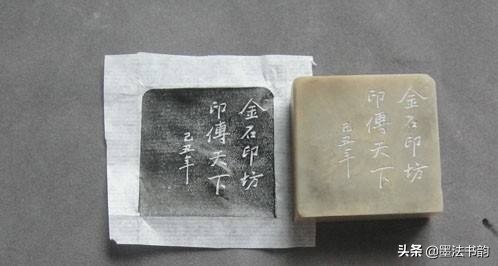 金石印坊
印傳天下
己丑年
金石印坊
印傳天下
己丑年
头条 @墨法书韵